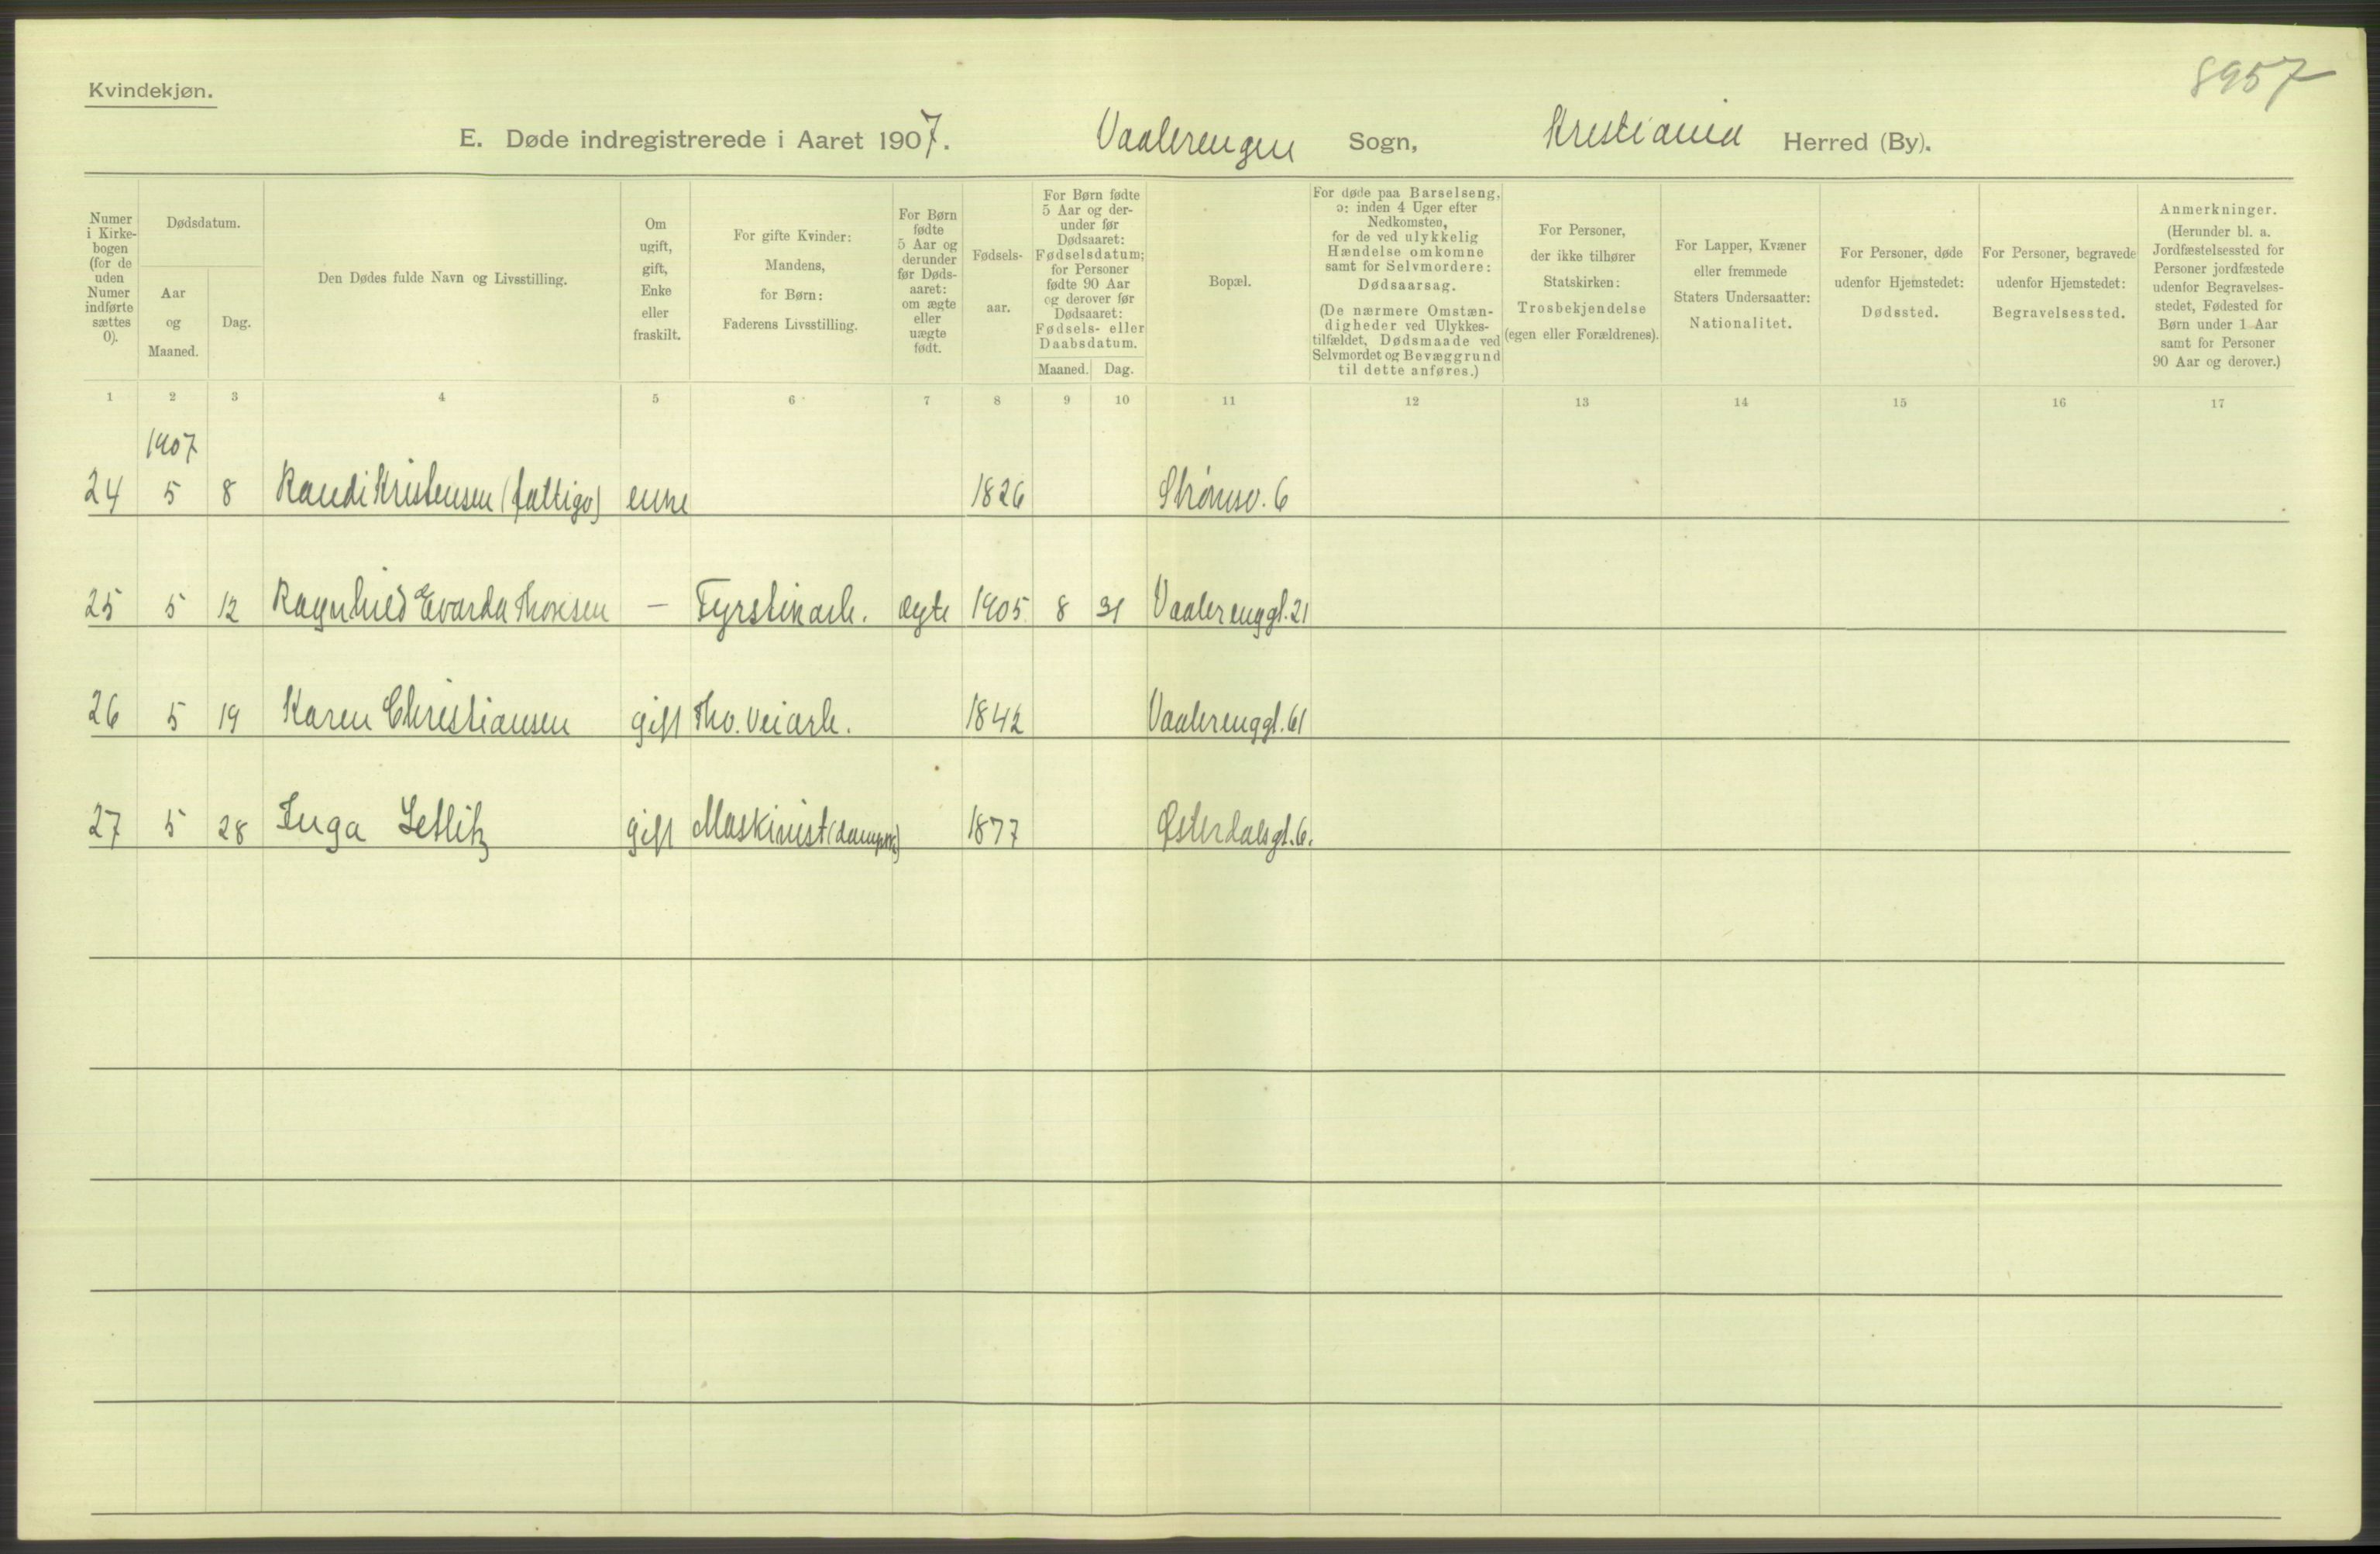 8957
Kvindekjøn.
E. Døde indregistrerede i Aaret 1907. Vaalerengen Sogn, Kristiania Herred (By).
Numer i Kirkebogen (for de uden Numer indførte sættes 0).
Dødsdatum.
Aar og Maaned.
Dag.
Den Dødes fulde Navn og Livsstilling.
Om ugift, gift, Enke eller fraskilt.
For gifte Kvinder: Mandens, for Børn: Faderens Livsstilling.
For Børn fødte 5 Aar og derunder før Dødsaaret: om ægte eller uægte født.
Fødselsaar.
For Børn fødte 5 Aar og derunder før Dødsaaret: Fødselsdatum; for Personer fødte 90 Aar og derover før Dødsaaret: Fødsels- eller Daabsdatum.
Maaned. Dag.
Bopæl.
For døde paa Barselseng, ɔ: inden 4 Uger efter Nedkomsten, for de ved ulykkelig Hændelse omkomne samt for Selvmordere: Dødsaarsag.
(De nærmere Omstændigheder ved Ulykkestilfældet, Dødsmaade ved Selvmordet og Bevæggrund til dette anføres.)
For Personer, der ikke tilhører Statskirken: Trosbekjendelse (egen eller Forældrenes).
For Lapper, Kvæner eller fremmede Staters Undersaatter: Nationalitet.
For Personer, døde udenfor Hjemstedet: Dødssted.
For Personer, begravede udenfor Hjemstedet: Begravelsessted.
Anmerkninger. (Herunder bl. a. Jordfæstelsessted for Personer jordfæstede udenfor Begravelsesstedet, Fødested for Børn under 1 Aar samt for Personer 90 Aar og derover.)
1 2 3 4 5 6 7 8 9 10 11 12 13 14 15 16 17
1907
24 5 8 Randi Kristensen (fattigv) enke 1826 Strømsv. 6
25 5 12 Ragnhild Evarda Thoresen — Fyrstikarb. ægte 1905 8 31 Vaalerenggt. 21
26 5 19 Karen Christiansen gift Thv. veiarb. 1842 Vaalerenggt. 61
27 5 28 Inga Setlitz gift Maskinist 1877 Østerdalsgt. 6.